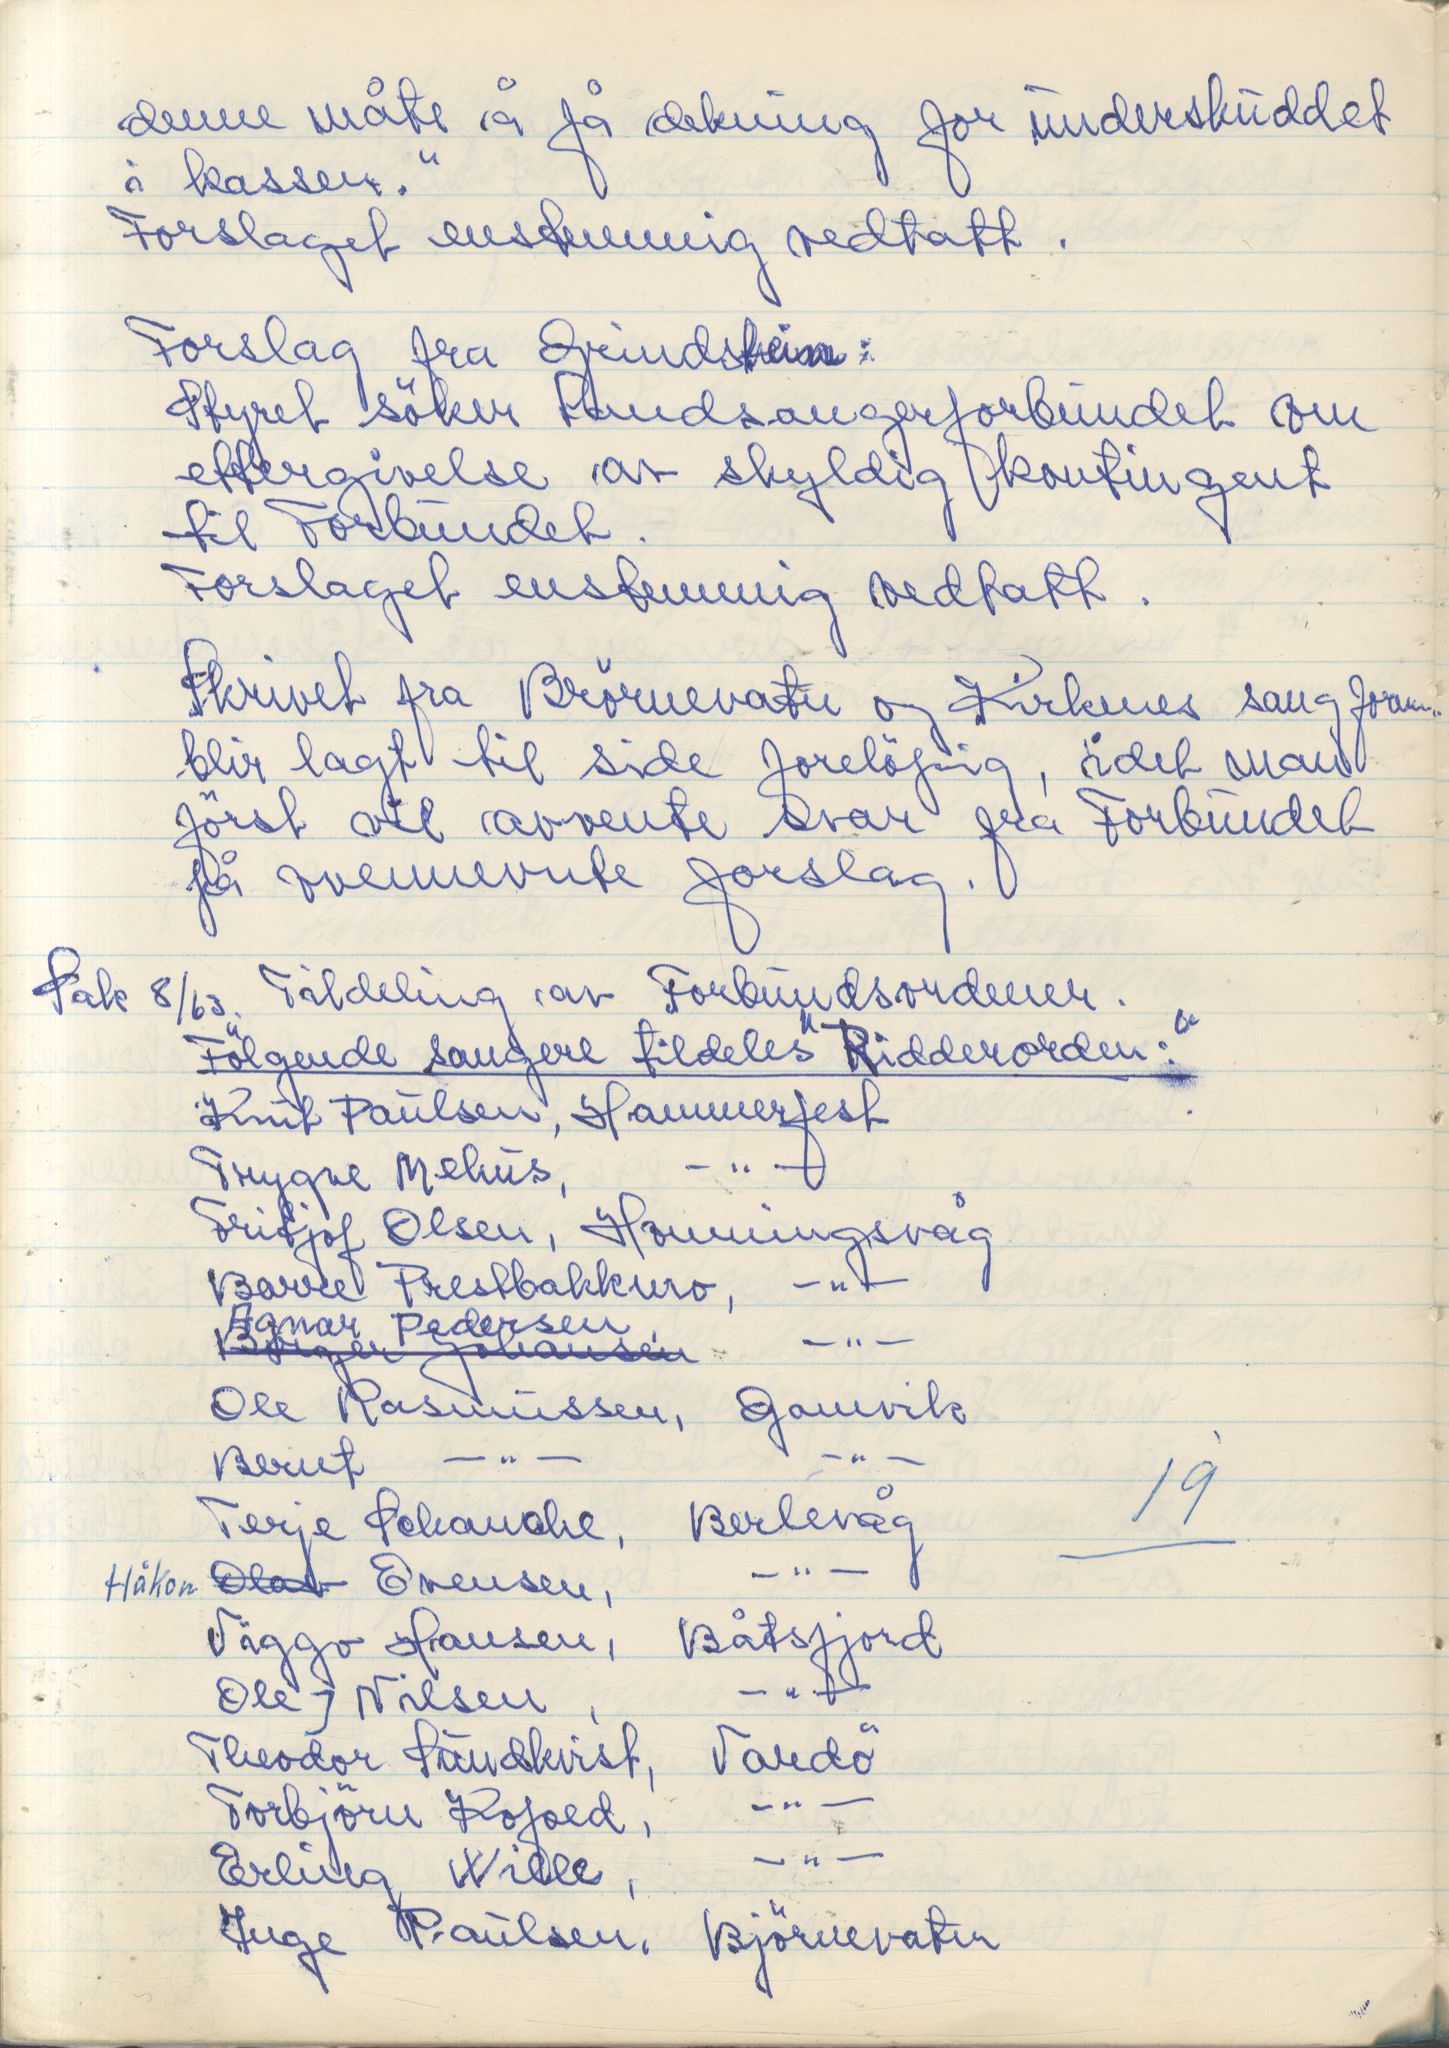 denne måte å få dekning for underskuddet
i kassen."
Forslaget enstemmig vedtatt.
Forslag fra Grindstein:
Styret söker Landssangerforbundet om
ettergivelse av skyldig kontingent
til Forbundet.
Forslaget enstemmig vedtatt.
Skrivet fra Brörnevatn og Kirkenes sangforen..
blir lagt til side forelöpig, idet man
först vil avvente svar fra Forbundet
på ovennevnte forslag.
Sak 8/63. Tildeling av Forbundsordener.
Fölgende sangere tildeles "Ridderorden:"
Knut Paulsen, Hammerfest
Trygve Mehus, -"-
Fritjof Olsen, Honningsvåg
Barre Prestbakkmo, -"-
Agnar Pedersen,
Börger Johansen -"-
Ole Rasmussen, Gamvik
Bernt -"- -"-
19
Terje Schanche, Berlevåg
Håkon Olav Evensen, -"-
Viggo Hansen, Båtsfjord
Ole J Nilsen, -"-
Theodor Sundkvist, Vardö
Torbjörn Kofoed, -"-
Erling Wille, -"-
Inge Paulsen, Björnevatn